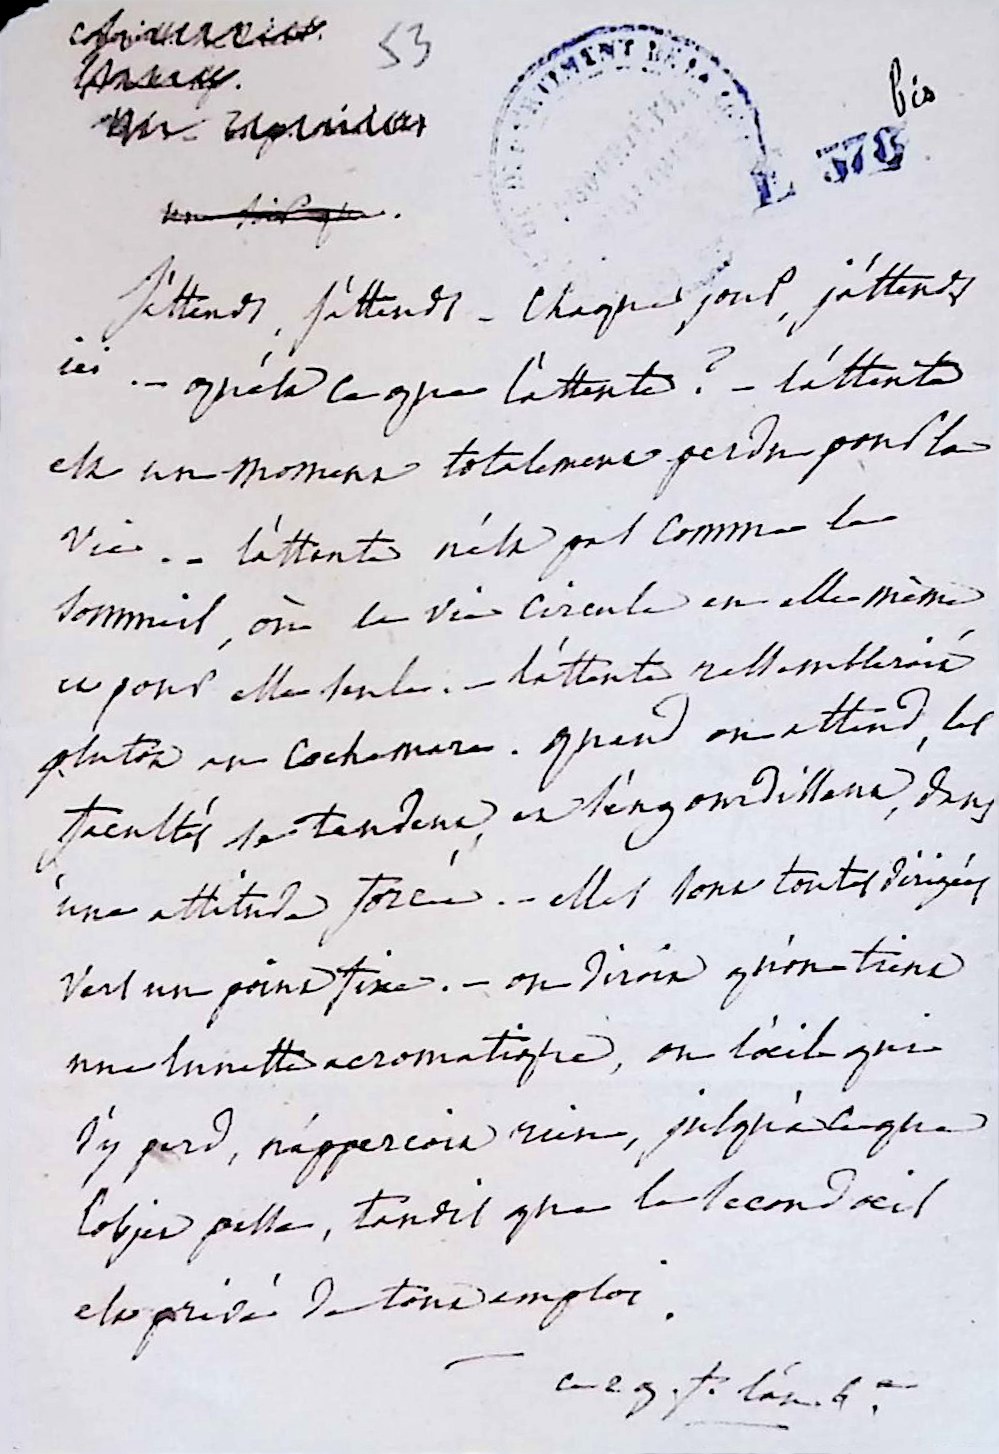 53
bis
L 378
J'attends, j'attends - chaque jour, j'attends
ici. - qu'est ce que l'attente ? - l'attente
est un moment totalement perdu pour la
vie. - l'attente n'est pas comme le
sommeil, où la vie circule en elle même
et pour elle seule. - l'attente ressembleroit
plutôt au cochemare. quand on attend, les
facultés se tendent, et s'engourdissent, dans
une attitude forcée. - elles sont toutes dirigées
vers un point fixe. - on diroit qu'on tient
une lunette acromatique, ou l'oeil qui
s'y perd, n'apperçoit rien, jusqu'à ce que
l'objet passe, tandis que le second oeil
est privé de tout emploi.
ce 29. f. l'an 6e.